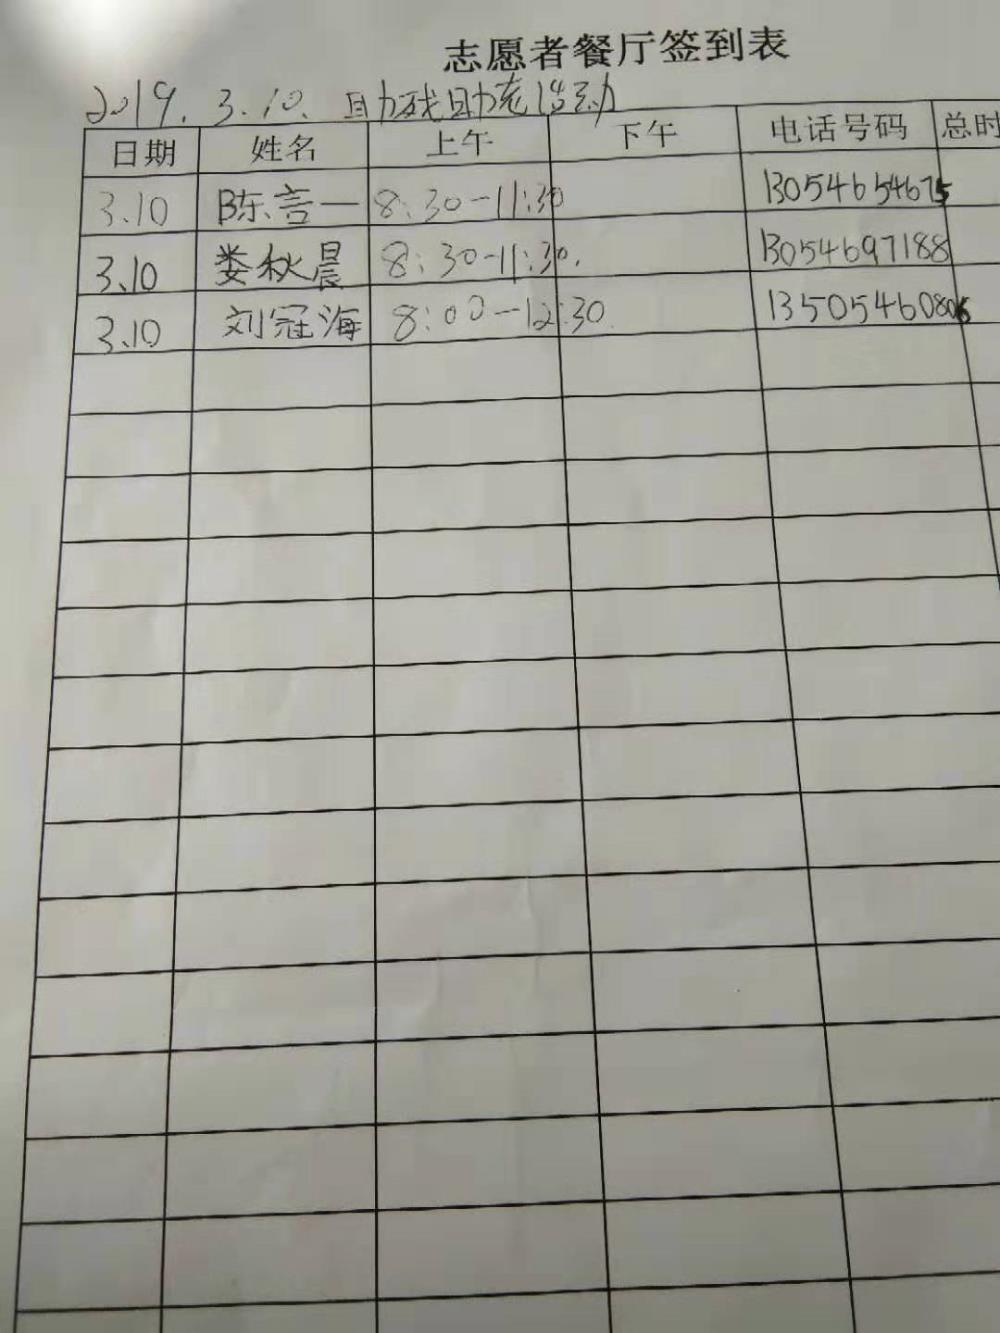 志愿者餐厅签到表
2019.3.10. 助残助老活动
日期 姓名 上午 下午 电话号码 总时
3.10 陈言一 8:30-11:30 13054654675
3.10 娄秋晨 8:30-11:30. 13054697188
3.10 刘冠海 8:00-12:30 13505460806